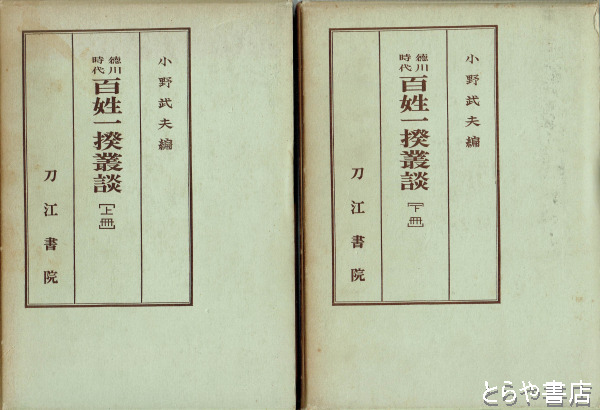 小野武夫編
徳川時代 百姓一揆叢談 [上冊]
刀江書院
小野武夫編
徳川時代 百姓一揆叢談 [下冊]
刀江書院
とらや書店